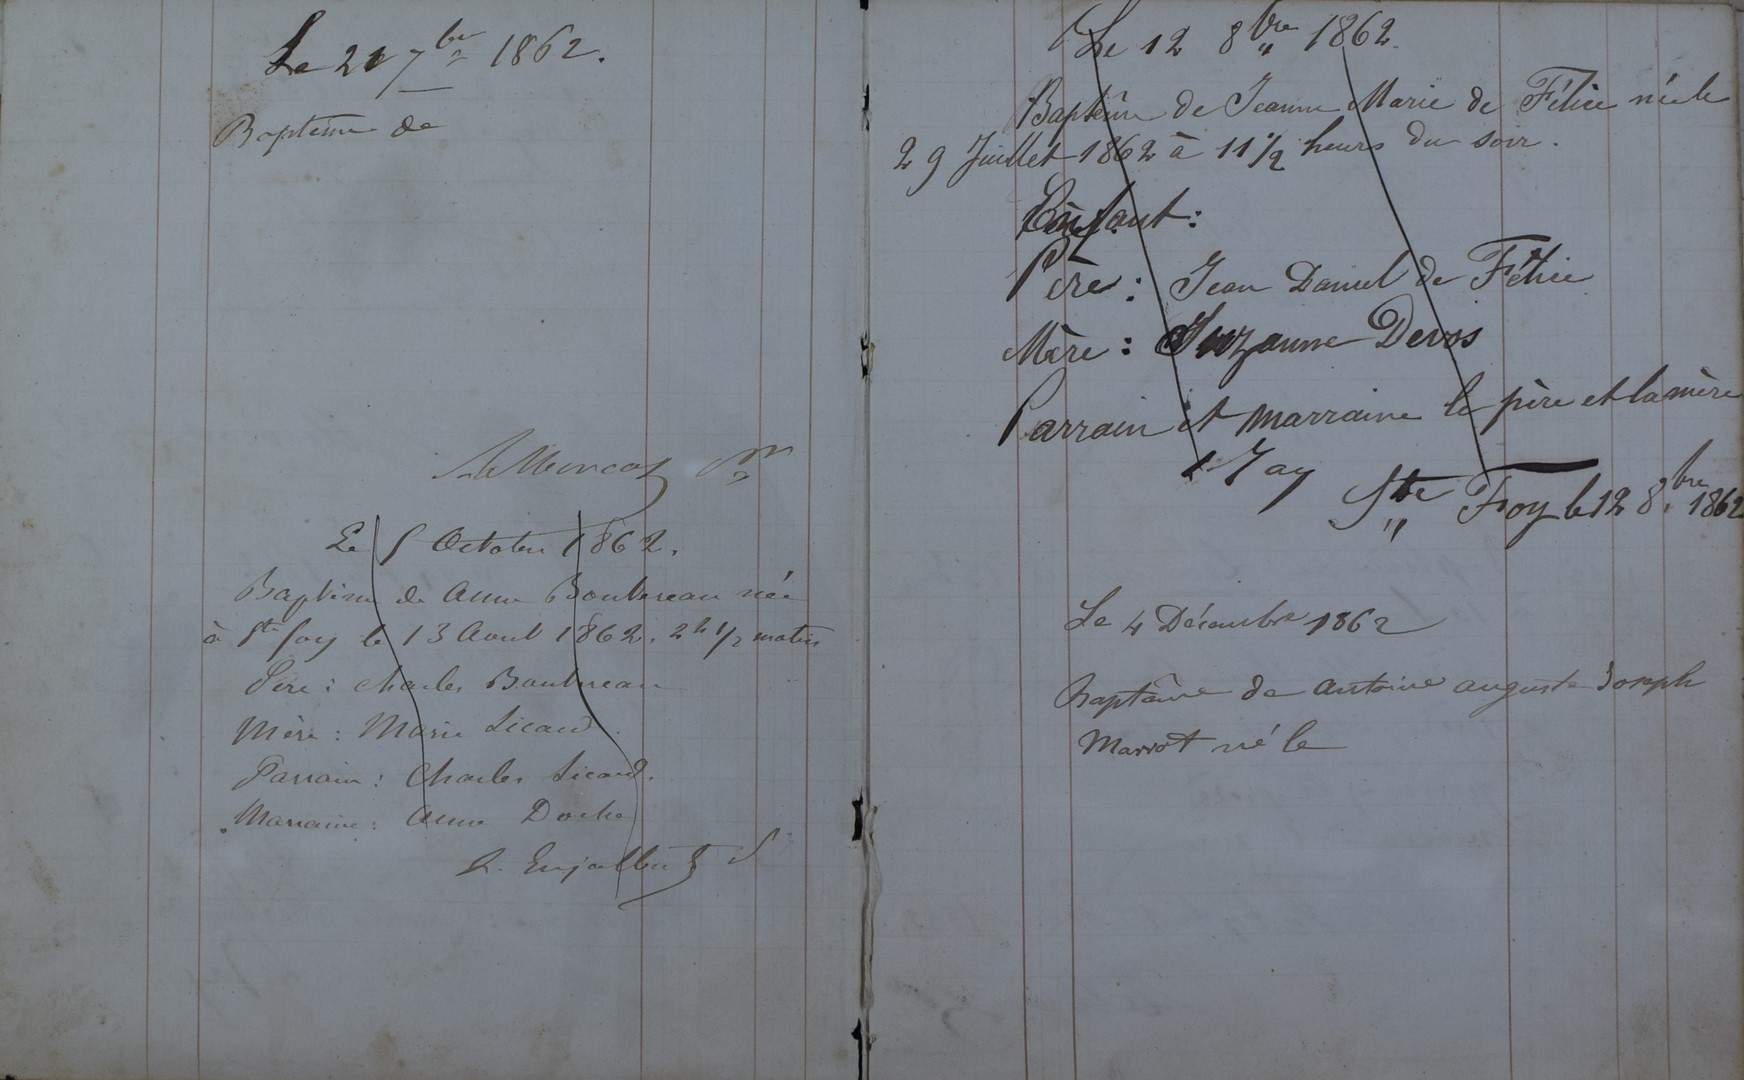 Le 21 7bre 1862.
Baptême de
Le 5 Octobre 1862.
Baptême de Anne Boutereau née
à Ste foy le 13 Aout 1862. 2h 1/2 matin
Père : Charles Boutereau
Mère : Marie Sicaud.
Parrain : Charles Sicaud.
Marraine : Anne Doche
L. Enjalbert
Le 12 8bre 1862.
Baptême de Jeanne Marie de Félice née le
29 Juillet 1862 à 11 1/2 heures du soir.
Enfant :
Père : Jean Daniel de Félice
Mère : Suzanne Devos
Parrain et Marraine le père et la mère
Jay
Ste Foy le 12 8bre 1862
Le 4 Décembre 1862
Baptême de Antoine Auguste Joseph
Marrot né le